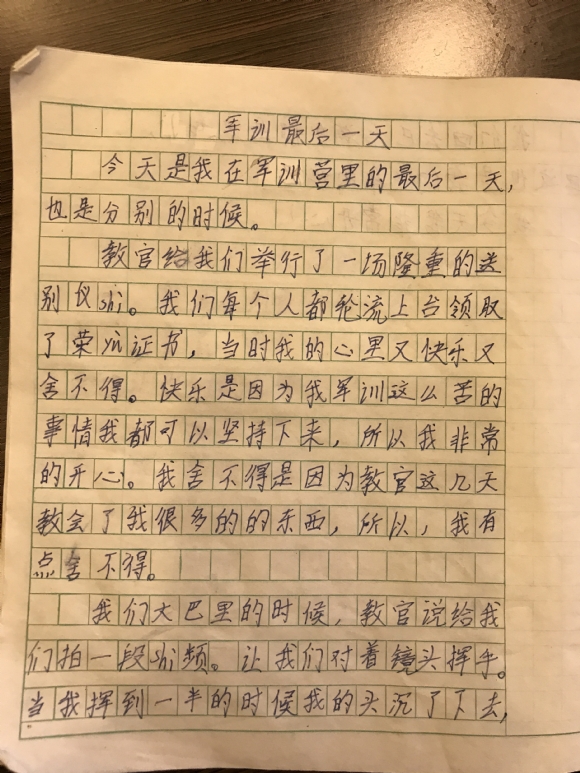 军训最后一天
今天是我在军训营里的最后一天，
也是分别的时候。
教官给我们举行了一场隆重的送
别仪shi。我们每个人都轮流上台领取
了荣yu证书，当时我的心里又快乐又
舍不得。快乐是因为我军训这么苦的
事情我都可以坚持下来，所以我非常
的开心。我舍不得是因为教官这几天
教会了我很多的的东西，所以，我有
点舍不得。
我们大巴里的时候，教官说给我
们拍一段shi频。让我们对着镜头挥手。
当我挥到一半的时候我的头沉了下去，